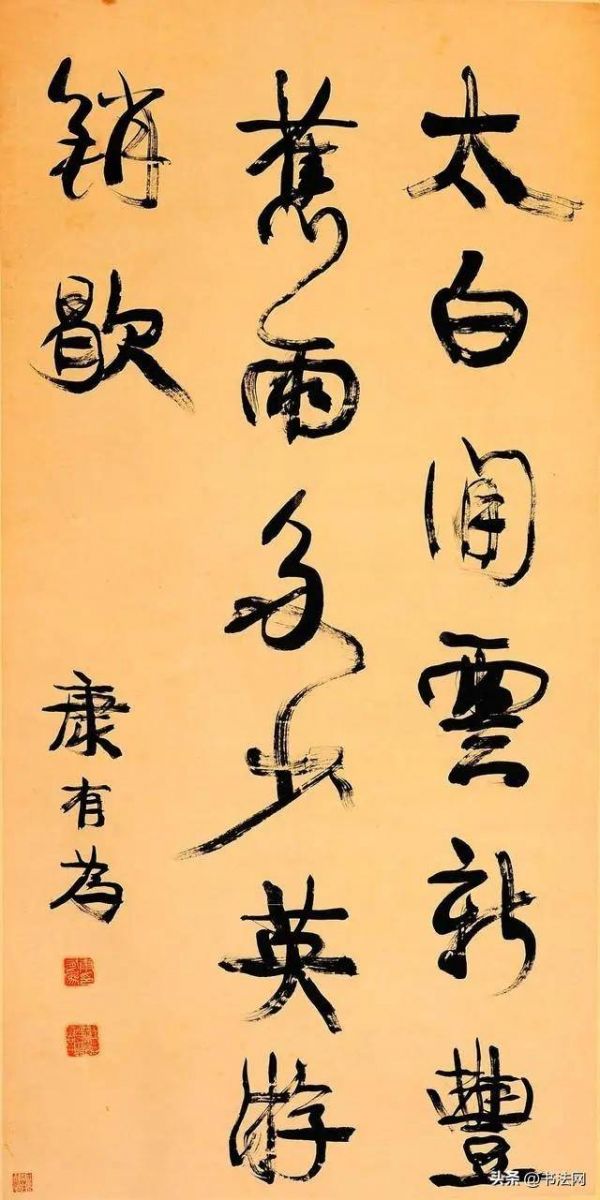 太白閒雲新豐
舊雨多少英游
銷歇
康有為
头条 @书法网